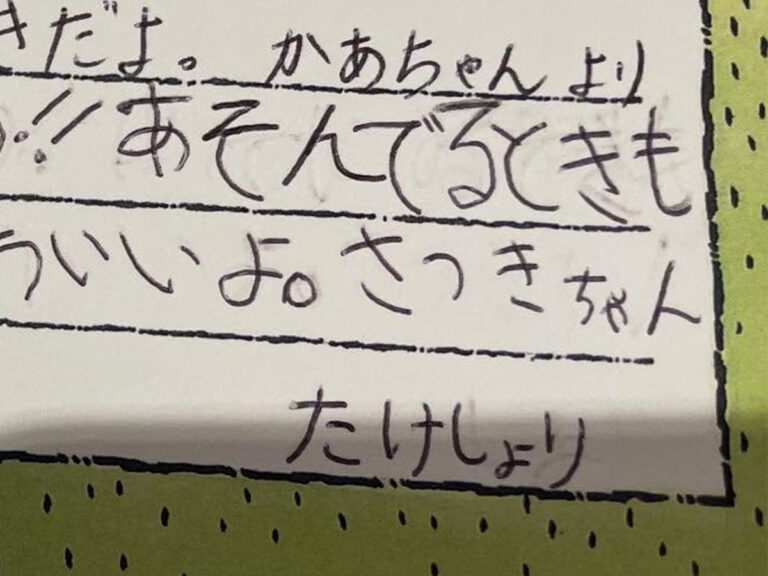 きだよ。 かあちゃん より
!! あそんでるときも
ういいよ。さっきちゃん
たけしより